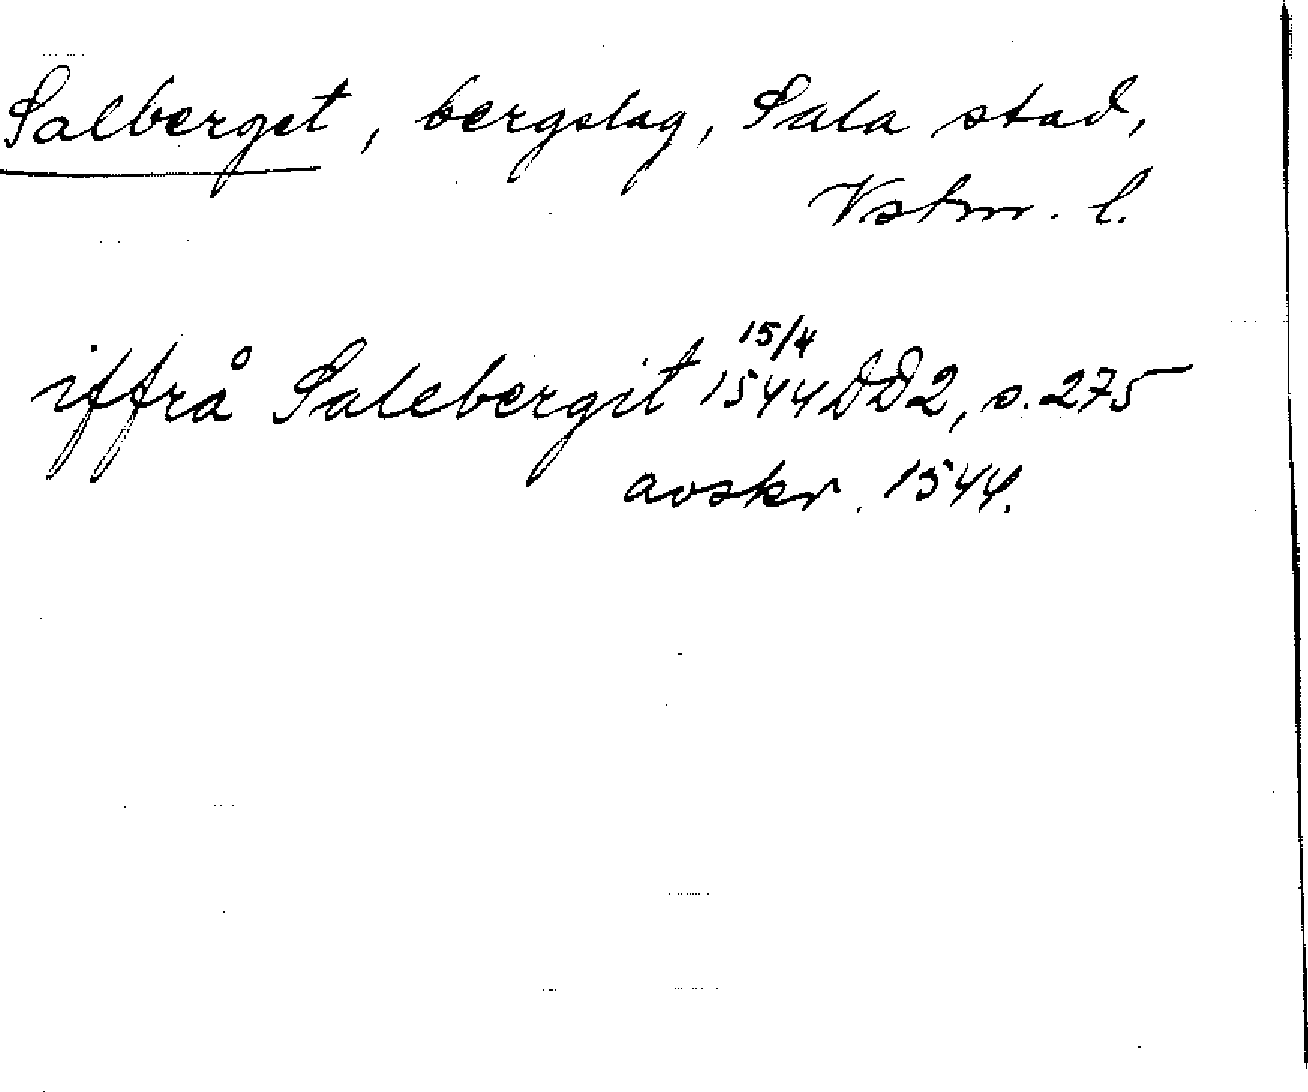 Salberget, bergslag, Sala stad,
Vstm. l.
iffrå Salebergit 15/4 1544 DD2, s. 275
avskr. 1544.